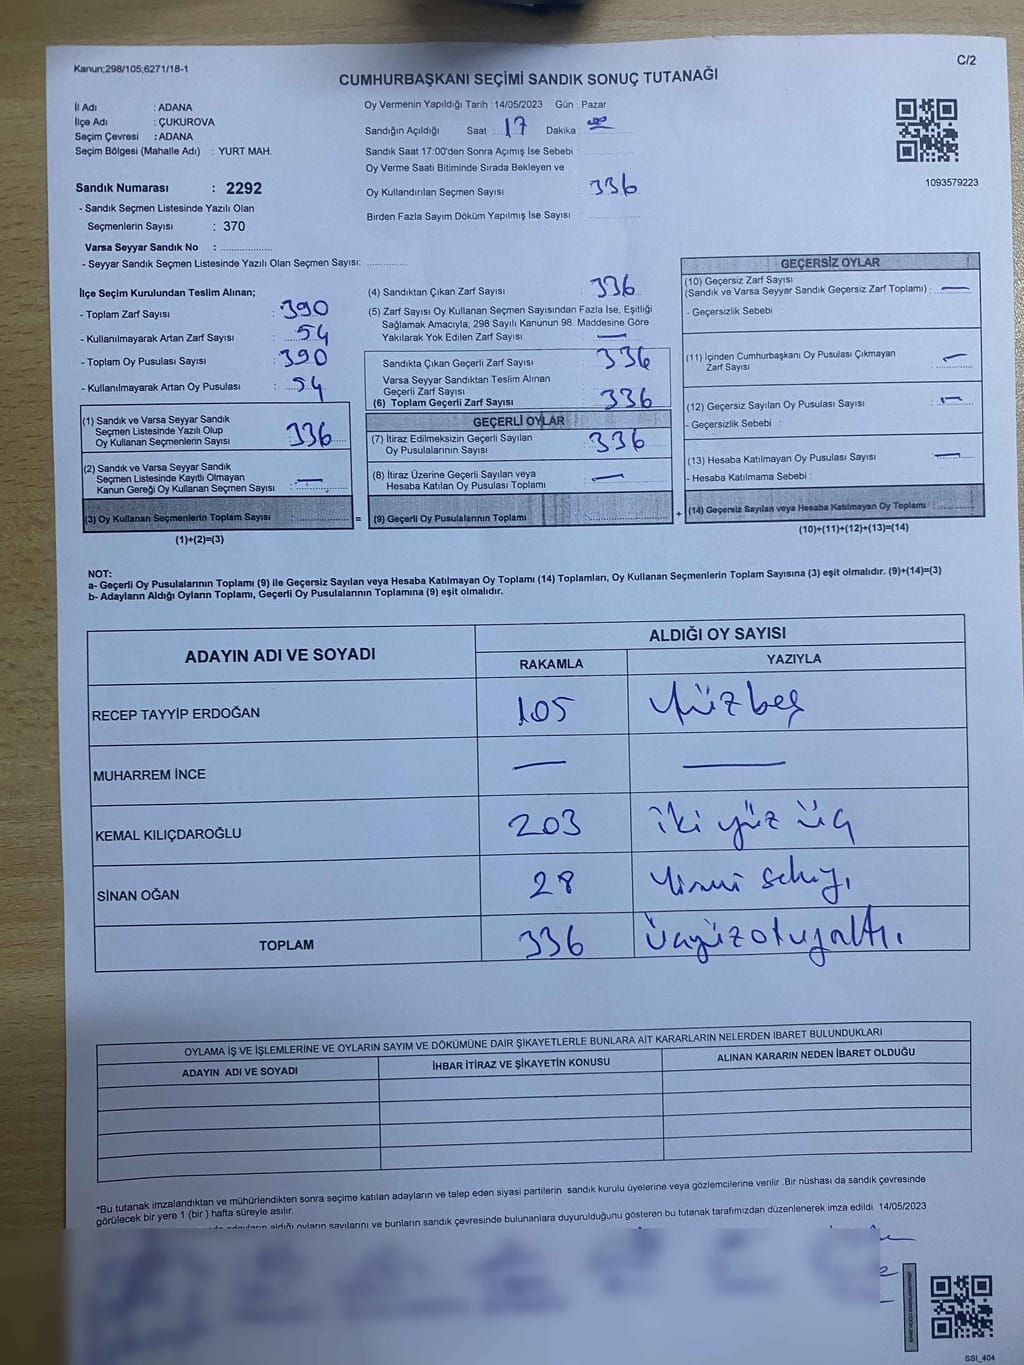 Kanun;298/105;6271/18-1
C/2
CUMHURBAŞKANI SEÇİMİ SANDIK SONUÇ TUTANAĞI
İl Adı : ADANA
İlçe Adı : ÇUKUROVA
Seçim Çevresi : ADANA
Seçim Bölgesi (Mahalle Adı) : YURT MAH.
Sandık Numarası : 2292
- Sandık Seçmen Listesinde Yazılı Olan
Seçmenlerin Sayısı : 370
Varsa Seyyar Sandık No :
- Seyyar Sandık Seçmen Listesinde Yazılı Olan Seçmen Sayısı:
Oy Vermenin Yapıldığı Tarih : 14/05/2023 Gün : Pazar
Sandığın Açıldığı Saat : 17 Dakika :
Sandık Saat 17:00'den Sonra Açımış İse Sebebi :
Oy Verme Saati Bitiminde Sırada Bekleyen ve
Oy Kullandırılan Seçmen Sayısı : 336
Birden Fazla Sayım Döküm Yapılmış İse Sayısı :
1093579223
İlçe Seçim Kurulundan Teslim Alınan;
- Toplam Zarf Sayısı : 390
- Kullanılmayarak Artan Zarf Sayısı : 54
- Toplam Oy Pusulası Sayısı : 390
- Kullanılmayarak Artan Oy Pusulası : 54
(1) Sandık ve Varsa Seyyar Sandık
Seçmen Listesinde Yazılı Olup
Oy Kullanan Seçmenlerin Sayısı : 336
(2) Sandık ve Varsa Seyyar Sandık
Seçmen Listesinde Kayıtlı Olmayan
Kanun Gereği Oy Kullanan Seçmen Sayısı : —
(3) Oy Kullanan Seçmenlerin Toplam Sayısı :
(1)+(2)=(3)
=
(4) Sandıktan Çıkan Zarf Sayısı : 336
(5) Zarf Sayısı Oy Kullanan Seçmen Sayısından Fazla İse, Eşitliği
Sağlamak Amacıyla; 298 Sayılı Kanunun 98. Maddesine Göre
Yakılarak Yok Edilen Zarf Sayısı : —
Sandıkta Çıkan Geçerli Zarf Sayısı : 336
Varsa Seyyar Sandıktan Teslim Alınan
Geçerli Zarf Sayısı
(6) Toplam Geçerli Zarf Sayısı : 336
GEÇERLİ OYLAR
(7) İtiraz Edilmeksizin Geçerli Sayılan
Oy Pusulalarının Sayısı : 336
(8) İtiraz Üzerine Geçerli Sayılan veya
Hesaba Katılan Oy Pusulası Toplamı : —
(9) Geçerli Oy Pusulalarının Toplamı :
+
GEÇERSİZ OYLAR
(10) Geçersiz Zarf Sayısı
(Sandık ve Varsa Seyyar Sandık Geçersiz Zarf Toplamı) : —
- Geçersizlik Sebebi
(11) İçinden Cumhurbaşkanı Oy Pusulası Çıkmayan
Zarf Sayısı : —
(12) Geçersiz Sayılan Oy Pusulası Sayısı : —
- Geçersizlik Sebebi :
(13) Hesaba Katılmayan Oy Pusulası Sayısı : —
- Hesaba Katılmama Sebebi :
(14) Geçersiz Sayılan veya Hesaba Katılmayan Oy Toplamı :
(10)+(11)+(12)+(13)=(14)
NOT:
a- Geçerli Oy Pusulalarının Toplamı (9) ile Geçersiz Sayılan veya Hesaba Katılmayan Oy Toplamı (14) Toplamları, Oy Kullanan Seçmenlerin Toplam Sayısına (3) eşit olmalıdır. (9)+(14)=(3)
b- Adayların Aldığı Oyların Toplamı, Geçerli Oy Pusulalarının Toplamına (9) eşit olmalıdır.
ADAYIN ADI VE SOYADI
ALDIĞI OY SAYISI
RAKAMLA YAZIYLA
RECEP TAYYİP ERDOĞAN 105 Yüzbeş
MUHARREM İNCE — —
KEMAL KILIÇDAROĞLU 203 iki yüz üç
SİNAN OĞAN 28
TOPLAM 336 üçyüzotuzaltı
OYLAMA İŞ VE İŞLEMLERİNE VE OYLARIN SAYIM VE DÖKÜMÜNE DAİR ŞİKAYETLERLE BUNLARA AİT KARARLARIN NELERDEN İBARET BULUNDUKLARI
ADAYIN ADI VE SOYADI İHBAR İTİRAZ VE ŞİKAYETİN KONUSU ALINAN KARARIN NEDEN İBARET OLDUĞU
*Bu tutanak imzalandıktan ve mühürlendikten sonra seçime katılan adayların ve talep eden siyasi partilerin sandık kurulu üyelerine veya gözlemcilerine verilir .Bir nüshası da sandık çevresinde
görülecek bir yere 1 (bir ) hafta süreyle asılır.
aldığı oyların sayılarını ve bunların sandık çevresinde bulunanlara duyurulduğunu gösteren bu tutanak tarafımızdan düzenlenerek imza edildi. 14/05/2023
SSI_404